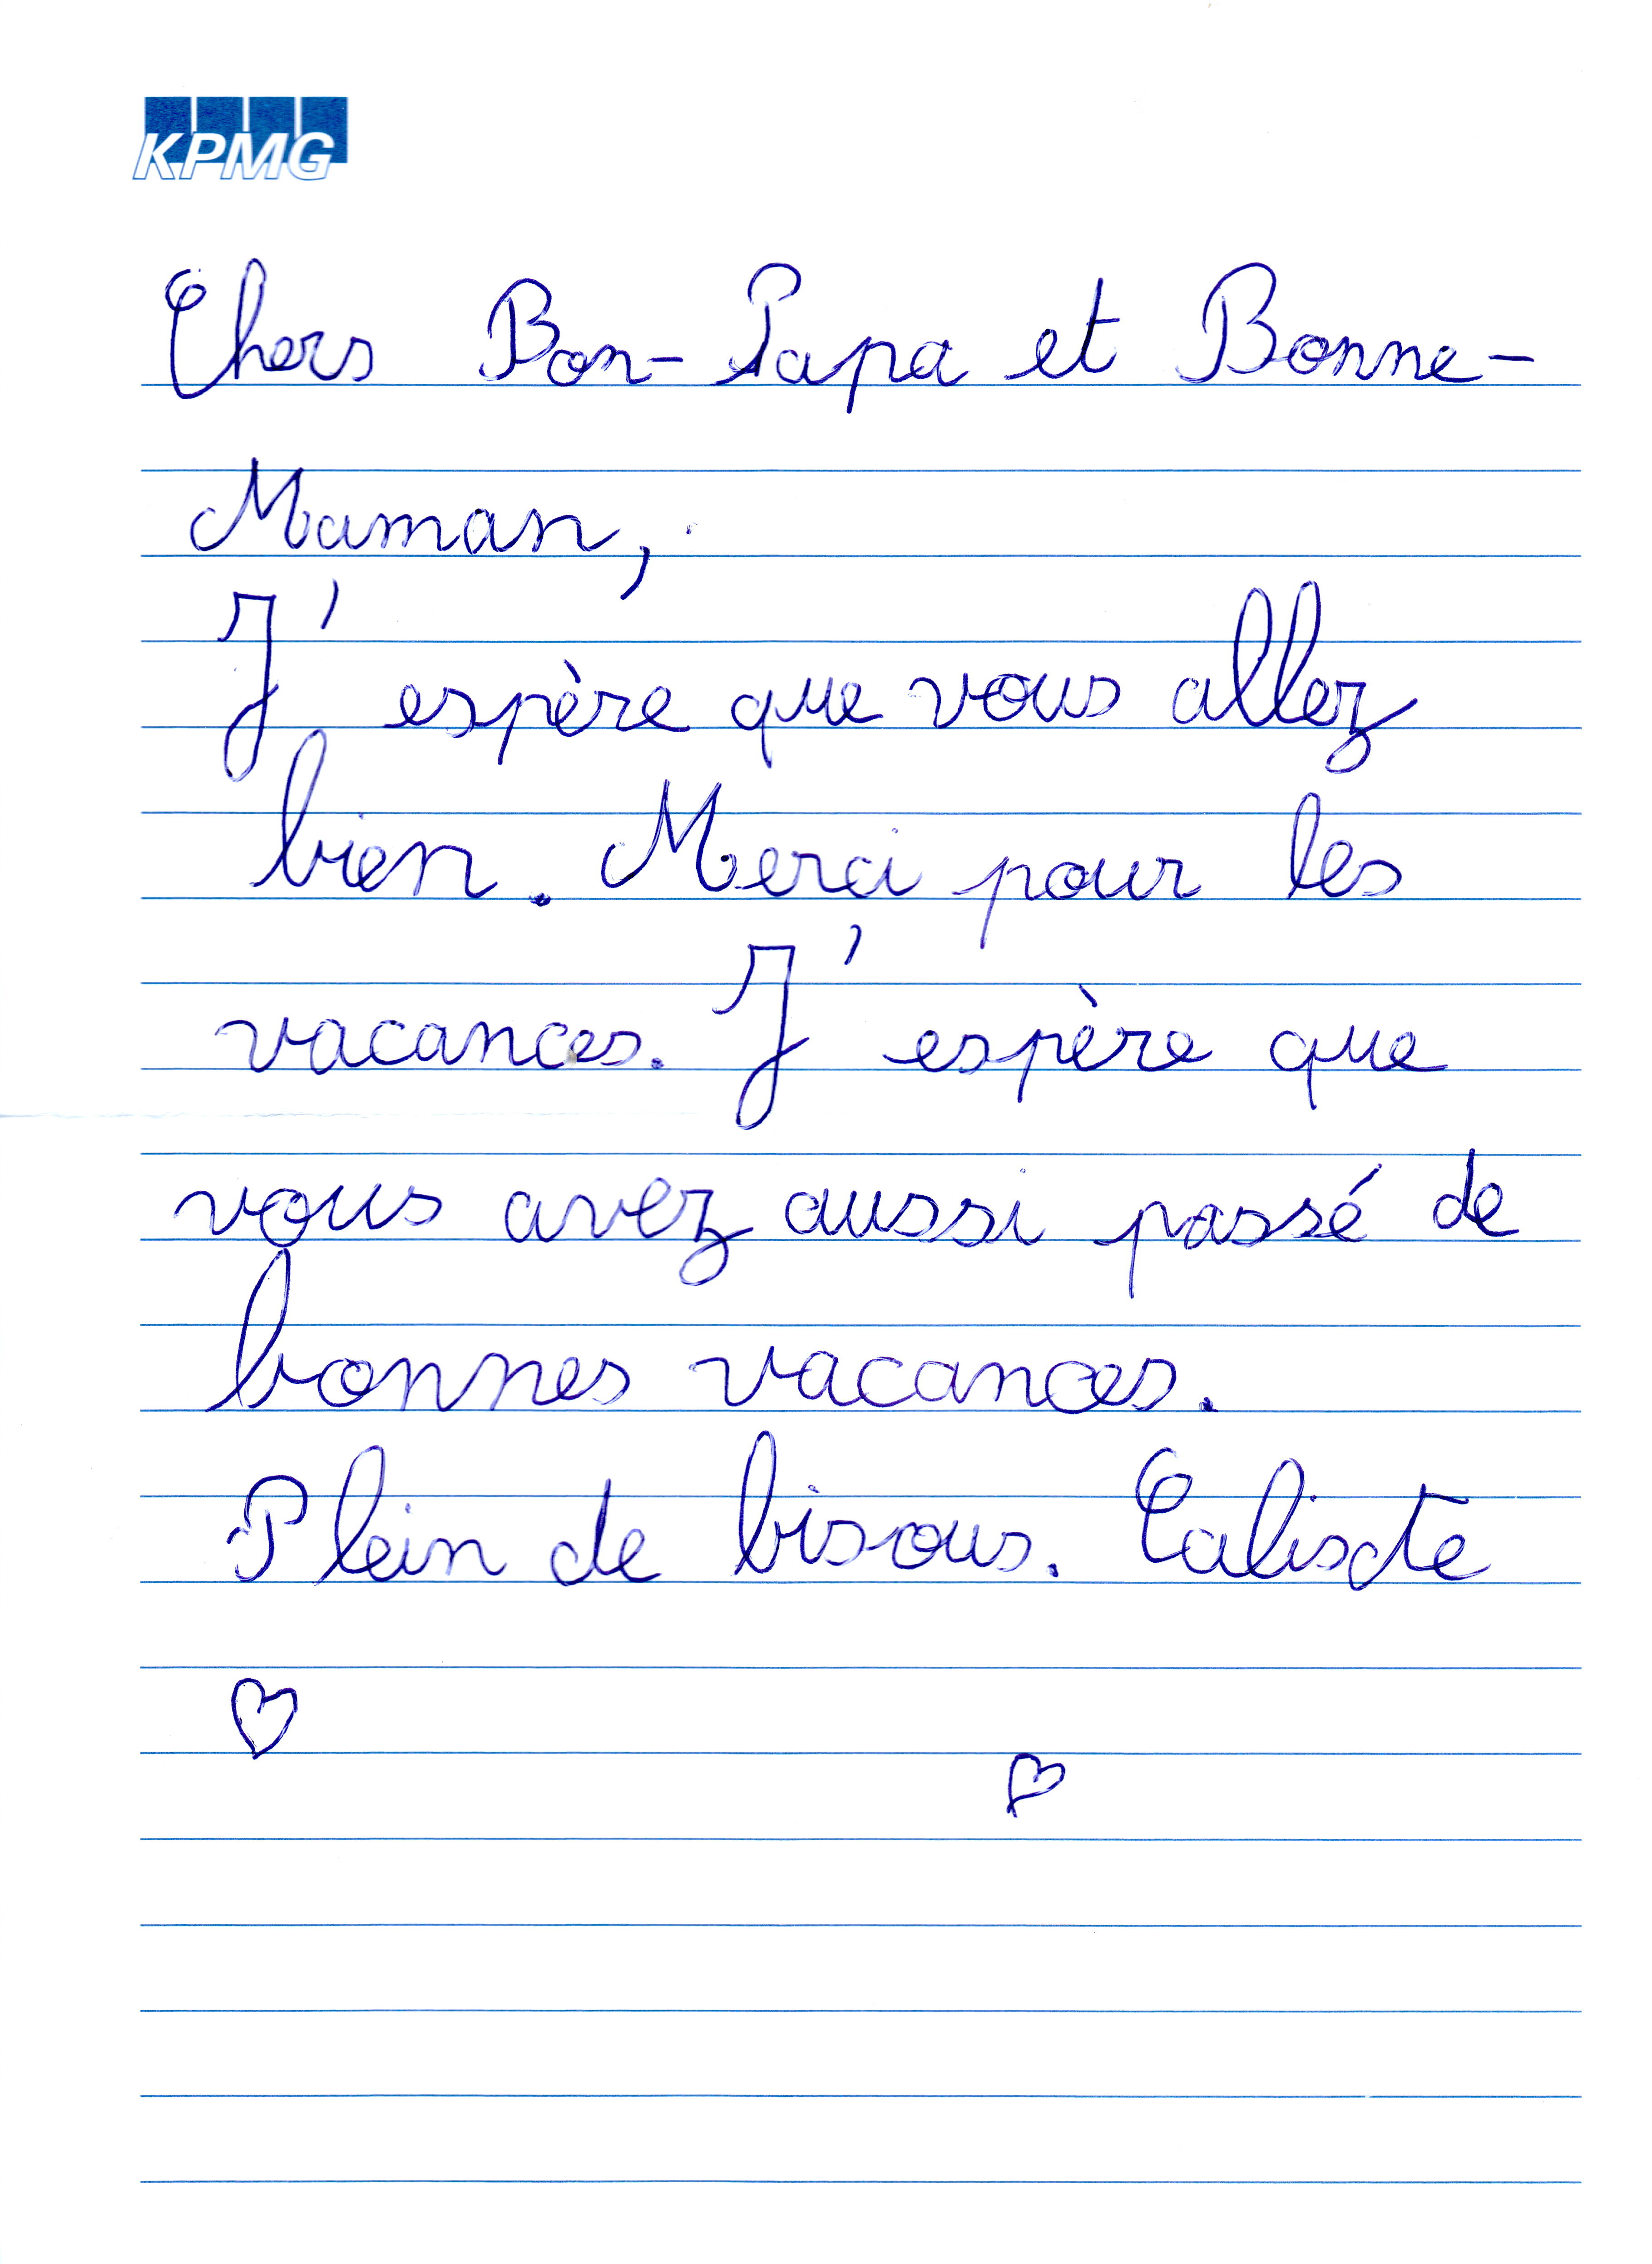 KPMG
Chers Bon-Papa et Bonne-
Maman,
J'espère que vous allez
bien. Merci pour les
vacances. J'espère que
vous avez aussi passé de
bonnes vacances.
Plein de bisous. Calixte